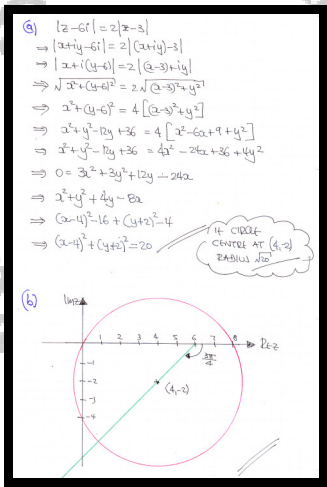 (a) |z-6i| = 2|z-3|
⇒ |x+iy-6i| = 2|(x+iy)-3|
⇒ |x+i(y-6)| = 2|(x-3)+iy|
⇒ √x²+(y-6)² = 2√(x-3)²+y²
⇒ x²+(y-6)² = 4[(x-3)²+y²]
⇒ x²+y²-12y+36 = 4[x²-6x+9+y²]
⇒ x²+y²-12y+36 = 4x²-24x+36+4y²
⇒ 0 = 3x²+3y²+12y-24x
⇒ x²+y²+4y-8x
⇒ (x-4)²-16+(y+2)²-4
⇒ (x-4)²+(y+2)²=20
IE CIRCLE
CENTRE AT (4,-2)
RADIUS √20
(b) Imz
1 2 3 4 5 6 7 8 Rez
3π/4
-1
-2
(4,-2)
-3
-4